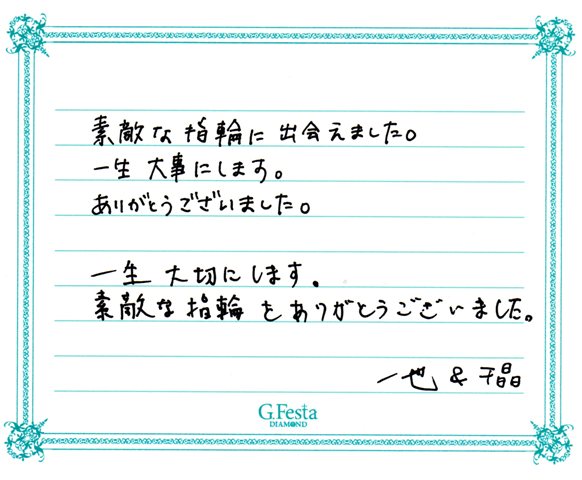 素敵な指輪に出会えました。
一生大事にします。
ありがとうございました。
一生大切にします。
素敵な指輪をありがとうございました。
一也&千晶
G.Festa
DIAMOND